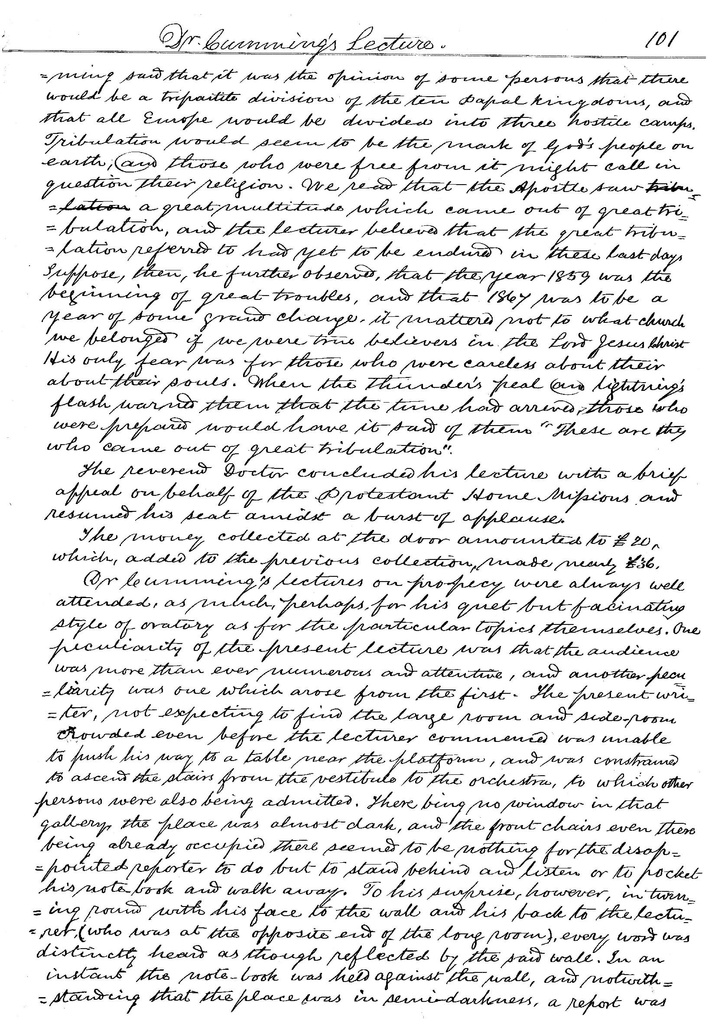 Dr. Cumming's Lecture. 101
=ming said that it was the opinion of some persons that there
would be a tripartite division of the ten Papal kingdoms, and
that all Europe would be divided into three hostile camps.
Tribulation would seem to be the mark of God's people on
earth, and those who were free from it might call in
question their religion. We read that the Apostle saw tribu-
=lation a great multitude which came out of great tri-
=bulation, and the lecturer believed that the great tribu=
=lation referred to had yet to be endured in these last days
Suppose, then, he further observed, that the year 1859 was the
beginning of great troubles, and that 1867 was to be a
year of some grand change. it mattered not to what church
we belonged if we were true believers in the Lord Jesus Christ
His only fear was for those who were careless about their
about their souls. When the thunder's peal and lightning's
flash warned them that the time had arrived, those who
were prepared would have it said of them "These are they
who came out of great tribulation".
The reverend Doctor concluded his lecture with a brief
appeal on behalf of the Protestant Home Missions and
resumed his seat amidst a burst of applause.
The money collected at the door amounted to £20,
which, added to the previous collection, made nearly £36.
Dr Cumming's lectures on propecy were always well
attended, as much, perhaps, for his quet but facinating
style of oratory as for the particular topics themselves. One
peculiarity of the present lecture was that the audience
was more than ever numerous and attentive, and another pecu
=liarity was one which arose from the first. The present wri=
=ter, not expecting to find the large room and side-room
crowded even before the lecturer commenced was unable
to push his way to a table near the platform, and was constrained
to ascend the stairs from the vestibule to the orchestra, to which other
persons were also being admitted. There bing no window in that
gallery, the place was almost dark, and the front chairs even there
being already occupied there seemed to be nothing for the disap=
=pointed reporter to do but to stand behind and listen or to pocket
his note-book and walk away. To his surprise, however, in turn=
=ing round with his face to the wall and his back to the lectu=
=rer, (who was at the opposite end of the long room), every word was
distinctly heard as though reflected by the said wall. In an
instant the note-book was held against the wall, and notwith=
=standing that the place was in semi-darkness, a report was